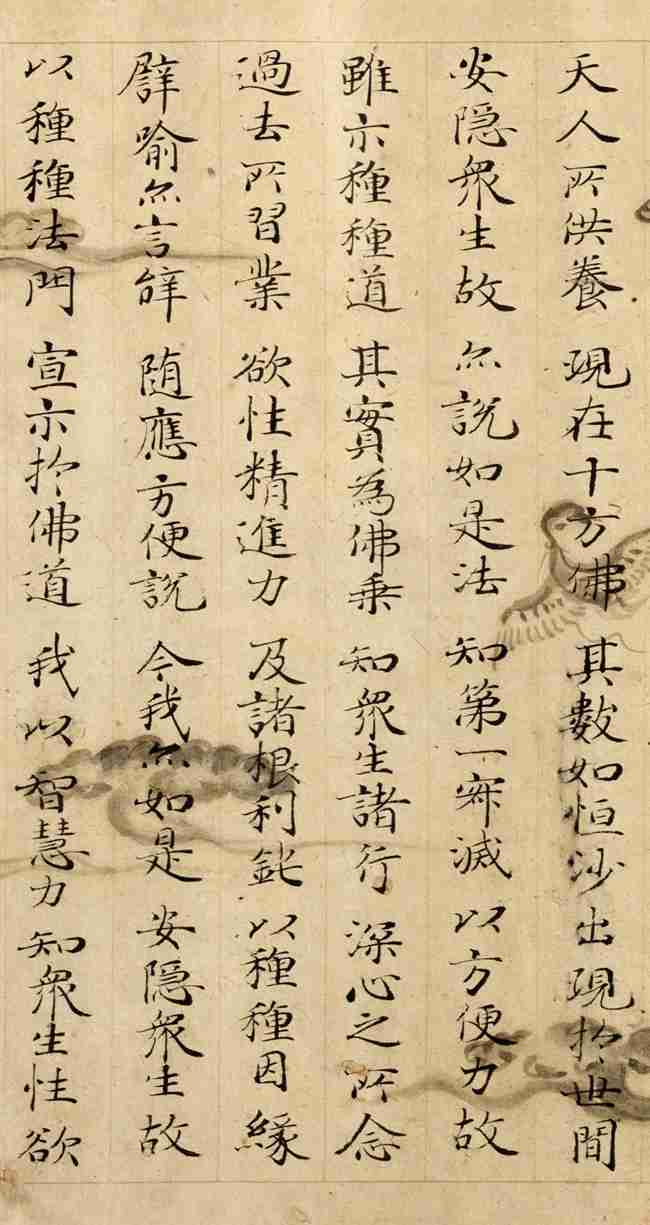 天人所供養 現在十方佛 其數如恒沙 出現於世間
安隱衆生故 亦說如是法 知第一寂滅 以方便力故
雖示種種道 其實為佛乗 知衆生諸行 深心之所念
過去所習業 欲性精進力 及諸根利鈍 以種種因緣
譬喻亦言辝 随應方便說 今我亦如是 安隱衆生故
以種種法門 宣示於佛道 我以智慧力 知衆生性欲